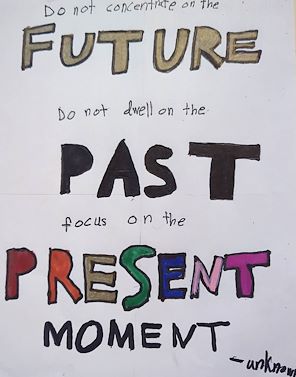 Do not concentrate on the
FUTURE
Do not dwell on the
PAST
focus on the
PRESENT
MOMENT
-unknown